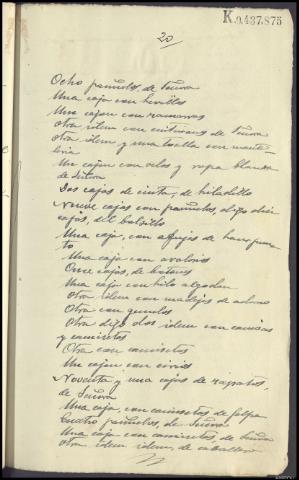 K.9.437.875
20
Ocho pañuelos, de Señora
Una caja con hevillas
Un cajon con
Otra idem con de Señora
Otra idem y una toalla con
Un cajon con velos y ropa blanca
de Señora
Dos cajas de cinta, de hiladillo
Nueve cajas con pañuelos, digo diez
cajas, del bolsillo
Una caja, con de hacer
to
Una caja con avalorios
Once cajas, de botones
Una caja con hilo algodon
Otra idem con madejas de
Otra con
Otra digo dos idem con camisas
y camisetas
Otra con camisetas
Un cajon con
Noventa y una cajas de zapatos,
de Señora
Una caja, con camisetas de felpa
Cuatro pañuelos, de Señora
Una caja con camisetas, de Señora
Otra idem idem, de caballero